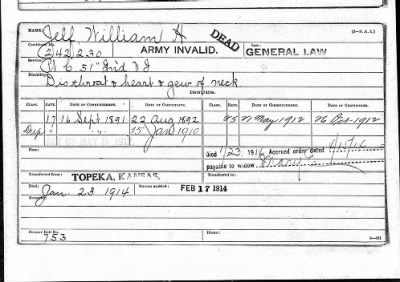 NAME: Jeff William H
(3-P.A.I.)
Certificate No. 242230
ARMY INVALID. DEAD
GENERAL LAW
Service: C 51" Ind V I
Disability: Dis throat & heart & gsw of neck
ISSUES.
CLASS. DATE OF COMMENCEMENT. DATE OF CERTIFICATE. CLASS. DATE OF COMMENCEMENT. DATE OF CERTIFICATE.
17 16 Sept 1891 22 Aug 1892 25 21 May 1912 26 Oct 1912
Dup " " 15 Jan 1910
Died 1/23, 1914 Accrued order dated
payable to widow,
Transferred from TOPEKA, KANSAS,
Transferred to
Died: Jan. 23 1914
Bureau notified: FEB 17 1914
Former Roll No.
753